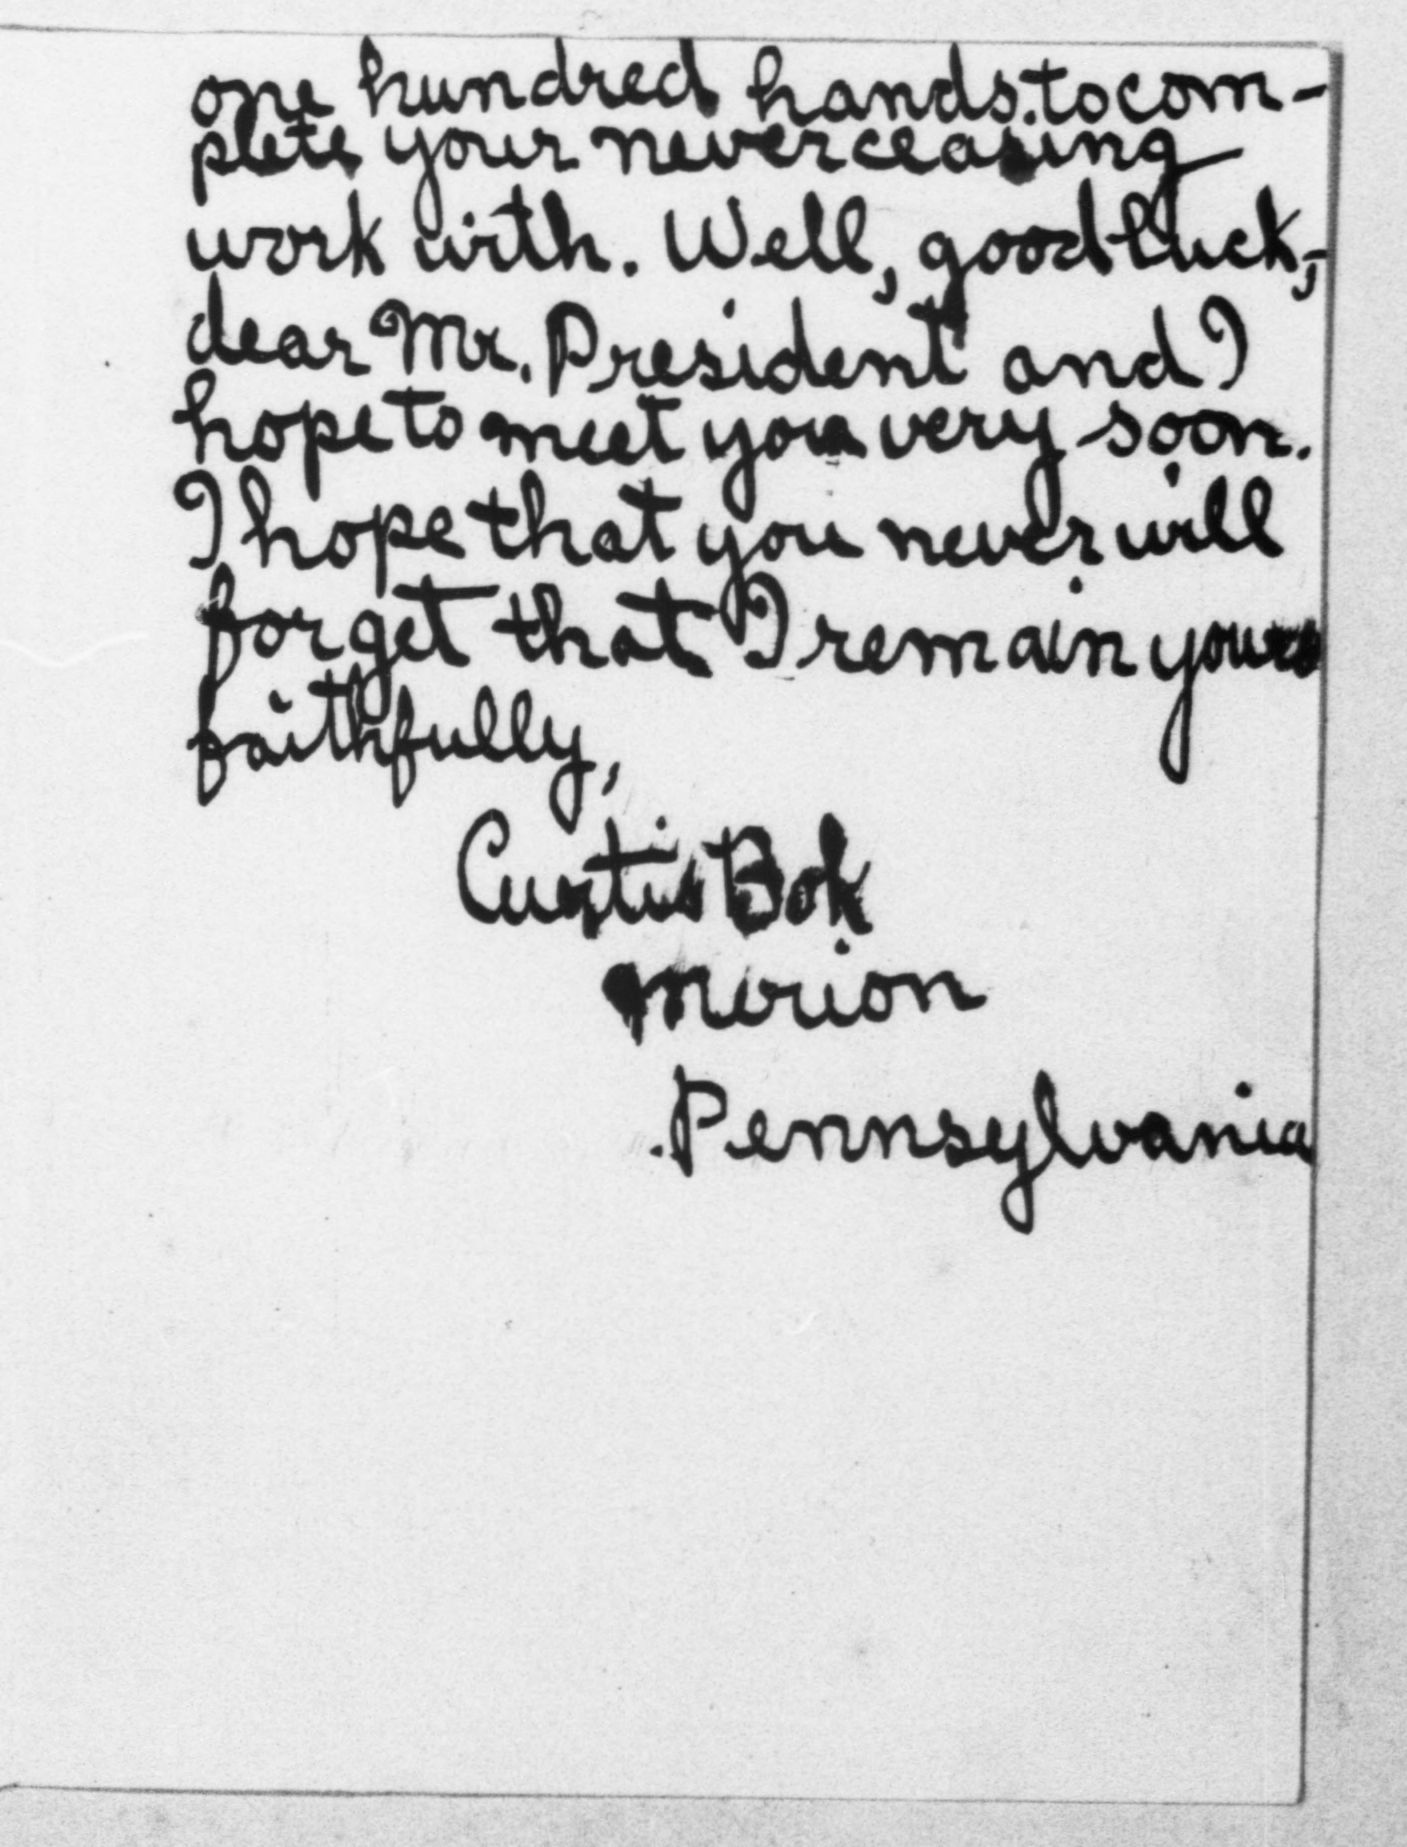 one hundred hands to com-
plete your never ceasing
work with. Well, good luck,
dear Mr. President and I
hope to meet you very soon.
I hope that you never will
forget that I remain yours
faithfully,
Curtis Bok
Merion
Pennsylvania